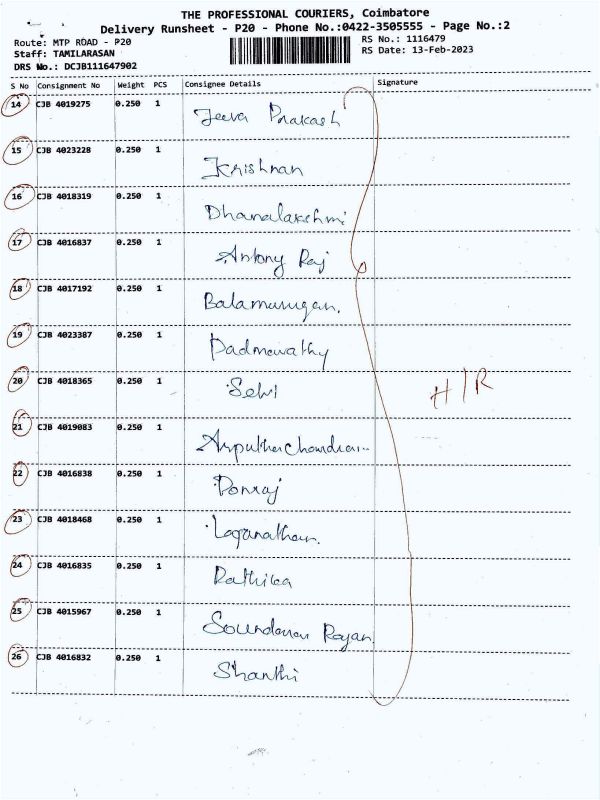 THE PROFESSIONAL COURIERS, Coimbatore
Delivery Runsheet - P20 - Phone No.:0422-3505555 - Page No.:2
Route: MTP ROAD - P20
RS No.: 1116479
Staff: TAMILARASAN
RS Date: 13-Feb-2023
DRS No.: DCJB111647902
S No Consignment No Weight PCS Consignee Details Signature
14 CJB 4019275 0.250 1 Jeeva Prakash
15 CJB 4023228 0.250 1 Krishnan
16 CJB 4018319 0.250 1 Dhanalakshmi
17 CJB 4016837 0.250 1 Antony Raj
18 CJB 4017192 0.250 1 Balamurugan.
19 CJB 4023387 0.250 1 Padmavathy
20 CJB 4018365 0.250 1 Selvi
H/R
21 CJB 4019083 0.250 1
22 CJB 4016838 0.250 1 Ponraj
23 CJB 4018468 0.250 1 Loganathan.
24 CJB 4016835 0.250 1 Rathika
25 CJB 4015967 0.250 1 Soundara Rajan
26 CJB 4016832 0.250 1 Shanthi